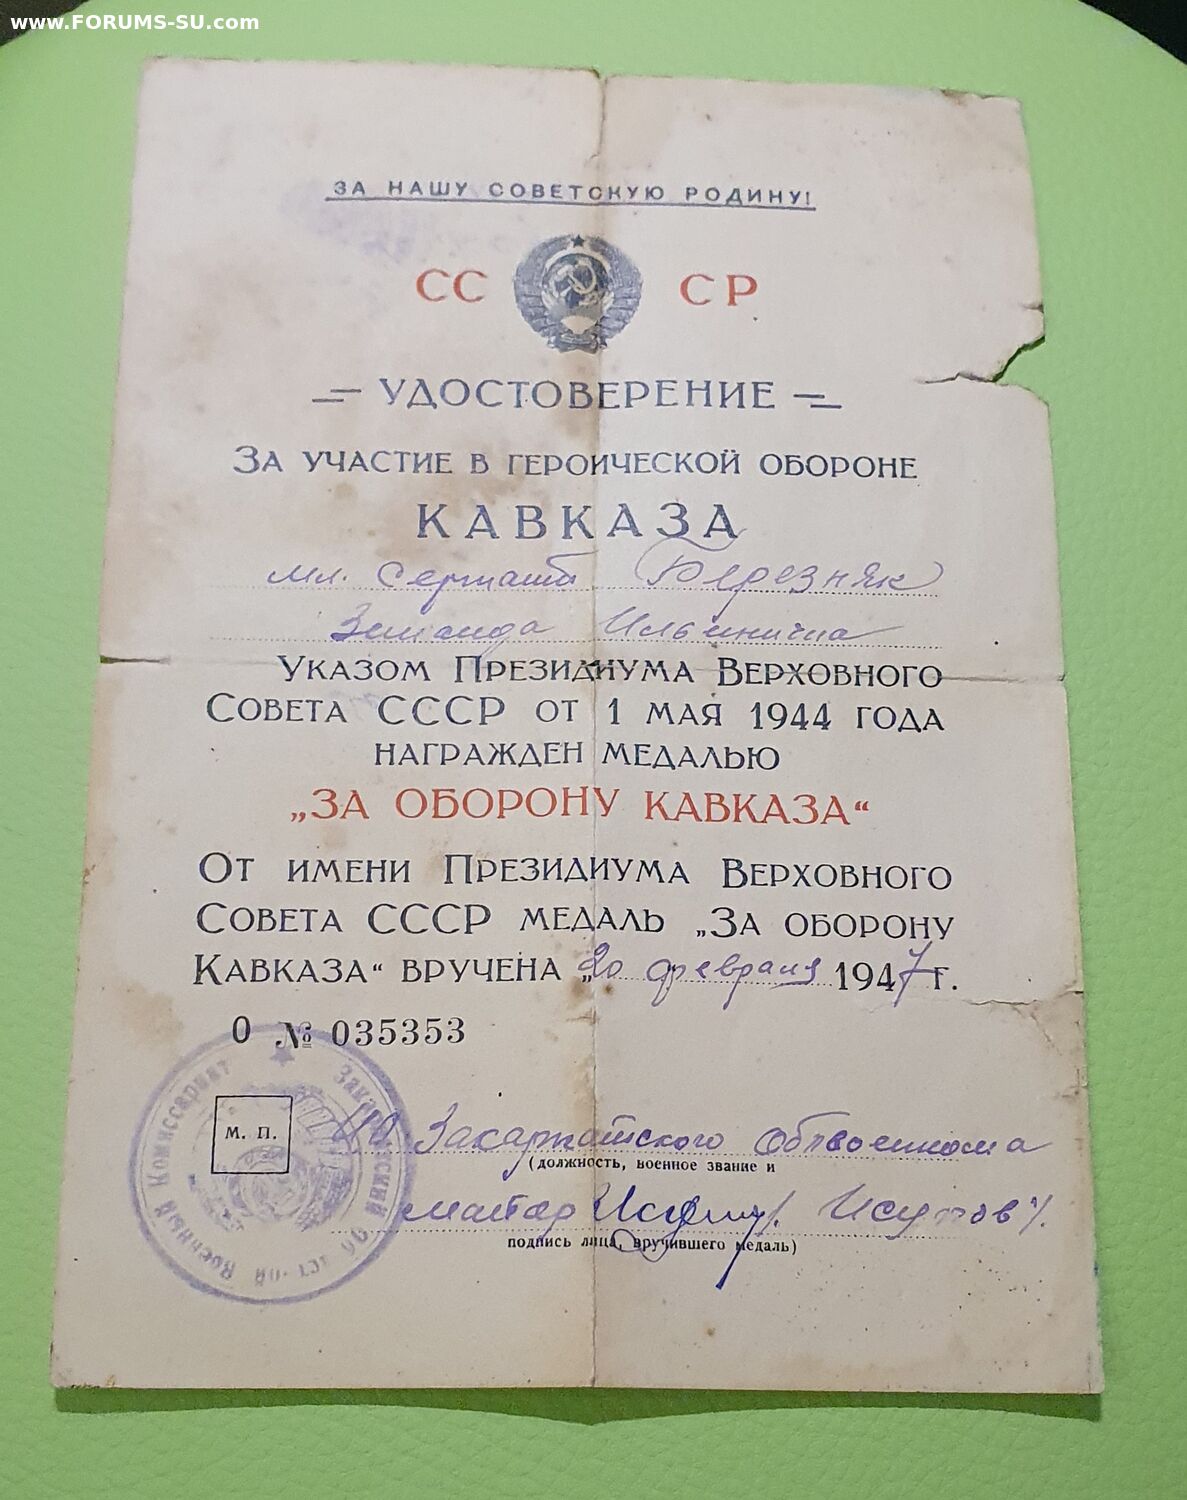 www.FORUMS-SU.com
ЗА НАШУ СОВЕТСКУЮ РОДИНУ!
СС СР
УДОСТОВЕРЕНИЕ
ЗА УЧАСТИЕ В ГЕРОИЧЕСКОЙ ОБОРОНЕ
КАВКАЗА
мл. сержант Березняк
Ильинична
УКАЗОМ ПРЕЗИДИУМА ВЕРХОВНОГО
СОВЕТА СССР ОТ 1 МАЯ 1944 ГОДА
НАГРАЖДЕН МЕДАЛЬЮ
„ЗА ОБОРОНУ КАВКАЗА“
ОТ ИМЕНИ ПРЕЗИДИУМА ВЕРХОВНОГО
СОВЕТА СССР МЕДАЛЬ „ЗА ОБОРОНУ
КАВКАЗА“ ВРУЧЕНА „20 февраля 1947 г.
О № 035353
Закарпатский Областной Военный Комиссариат
М. П.
Закарпатского Облвоенкома
(должность, военное звание и
майор Исупов
подпись лица, вручившего медаль)